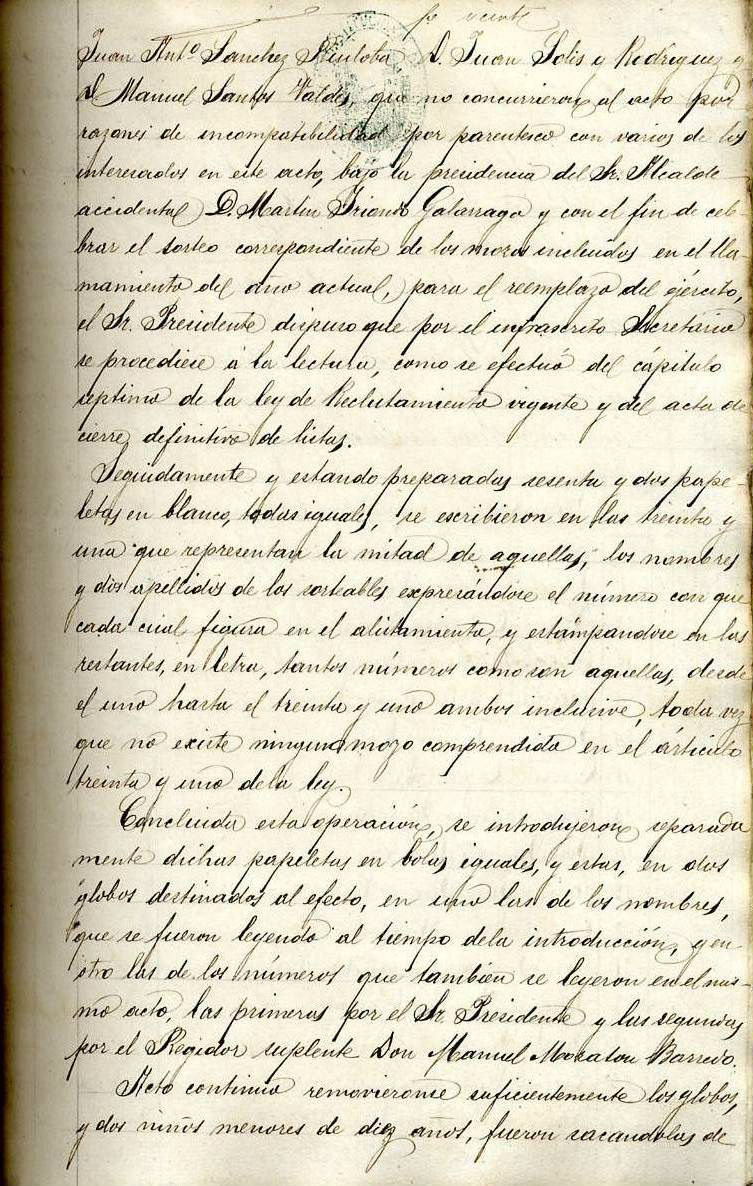 Juan Antº Sanchez D. Juan Solis y Rodriguez y
D Manuel Santos Valdés, que no concurrieron al acto por
razones de incompatibilidad por parentesco con varios de los
interesados en este acto, bajo la presidencia del Sr. Alcalde
accidental D. Martin Iriondo Galarraga y con el fin de cele
brar el sorteo correspondiente de los mozos incluidos en el lla-
mamiento del año actual, para el reemplazo del ejército,
el Sr. Presidente dispuso que por el infrascrito Secretario
se procediese á la lectura, como se efectuó del cápitulo
septimo de la ley de Reclutamiento vigente y del acta de
cierre definitivo de listas.
Seguidamente y estando preparadas sesenta y dos pape-
letas en blanco, todas iguales, se escribieron en las treinta y
una que representan la mitad de aquellas, los nombres
y dos apellidos de los sorteables expresándose el número con que
cada cual figura en el alistamiento, y estámpandose en las
restantes, en letra, tantos números como son aquellas, desde
el uno hasta el treinta y uno ambos inclusive, toda vez
que no existe ningun mozo comprendido en el árticulo
treinta y uno de la ley.
Concluida esta operación, se introdujeron separada
mente dichas papeletas en bolas iguales, y estas, en dos
globos destinados al efecto, en uno las de los nombres,
que se fueron leyendo al tiempo de la introducción, y en
otro las de los números que tambien se leyeron en el mis-
mo acto, las primeras por el Sr. Presidente y las segundas
por el Regidor suplente Don Manuel Barredo.
Acto continuo removieronse suficientemente los globos,
y dos niños menores de diez años, fueron sacandolas de